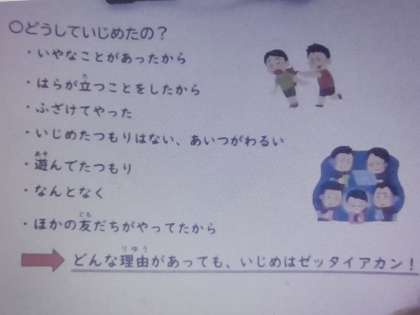 〇どうしていじめたの？
・いやなことがあったから
・はらが立つことをしたから
・ふざけてやった
・いじめたつもりはない、あいつがわるい
・遊んでたつもり
・なんとなく
・ほかの友だちがやってたから
どんな理由があっても、いじめはゼッタイアカン！